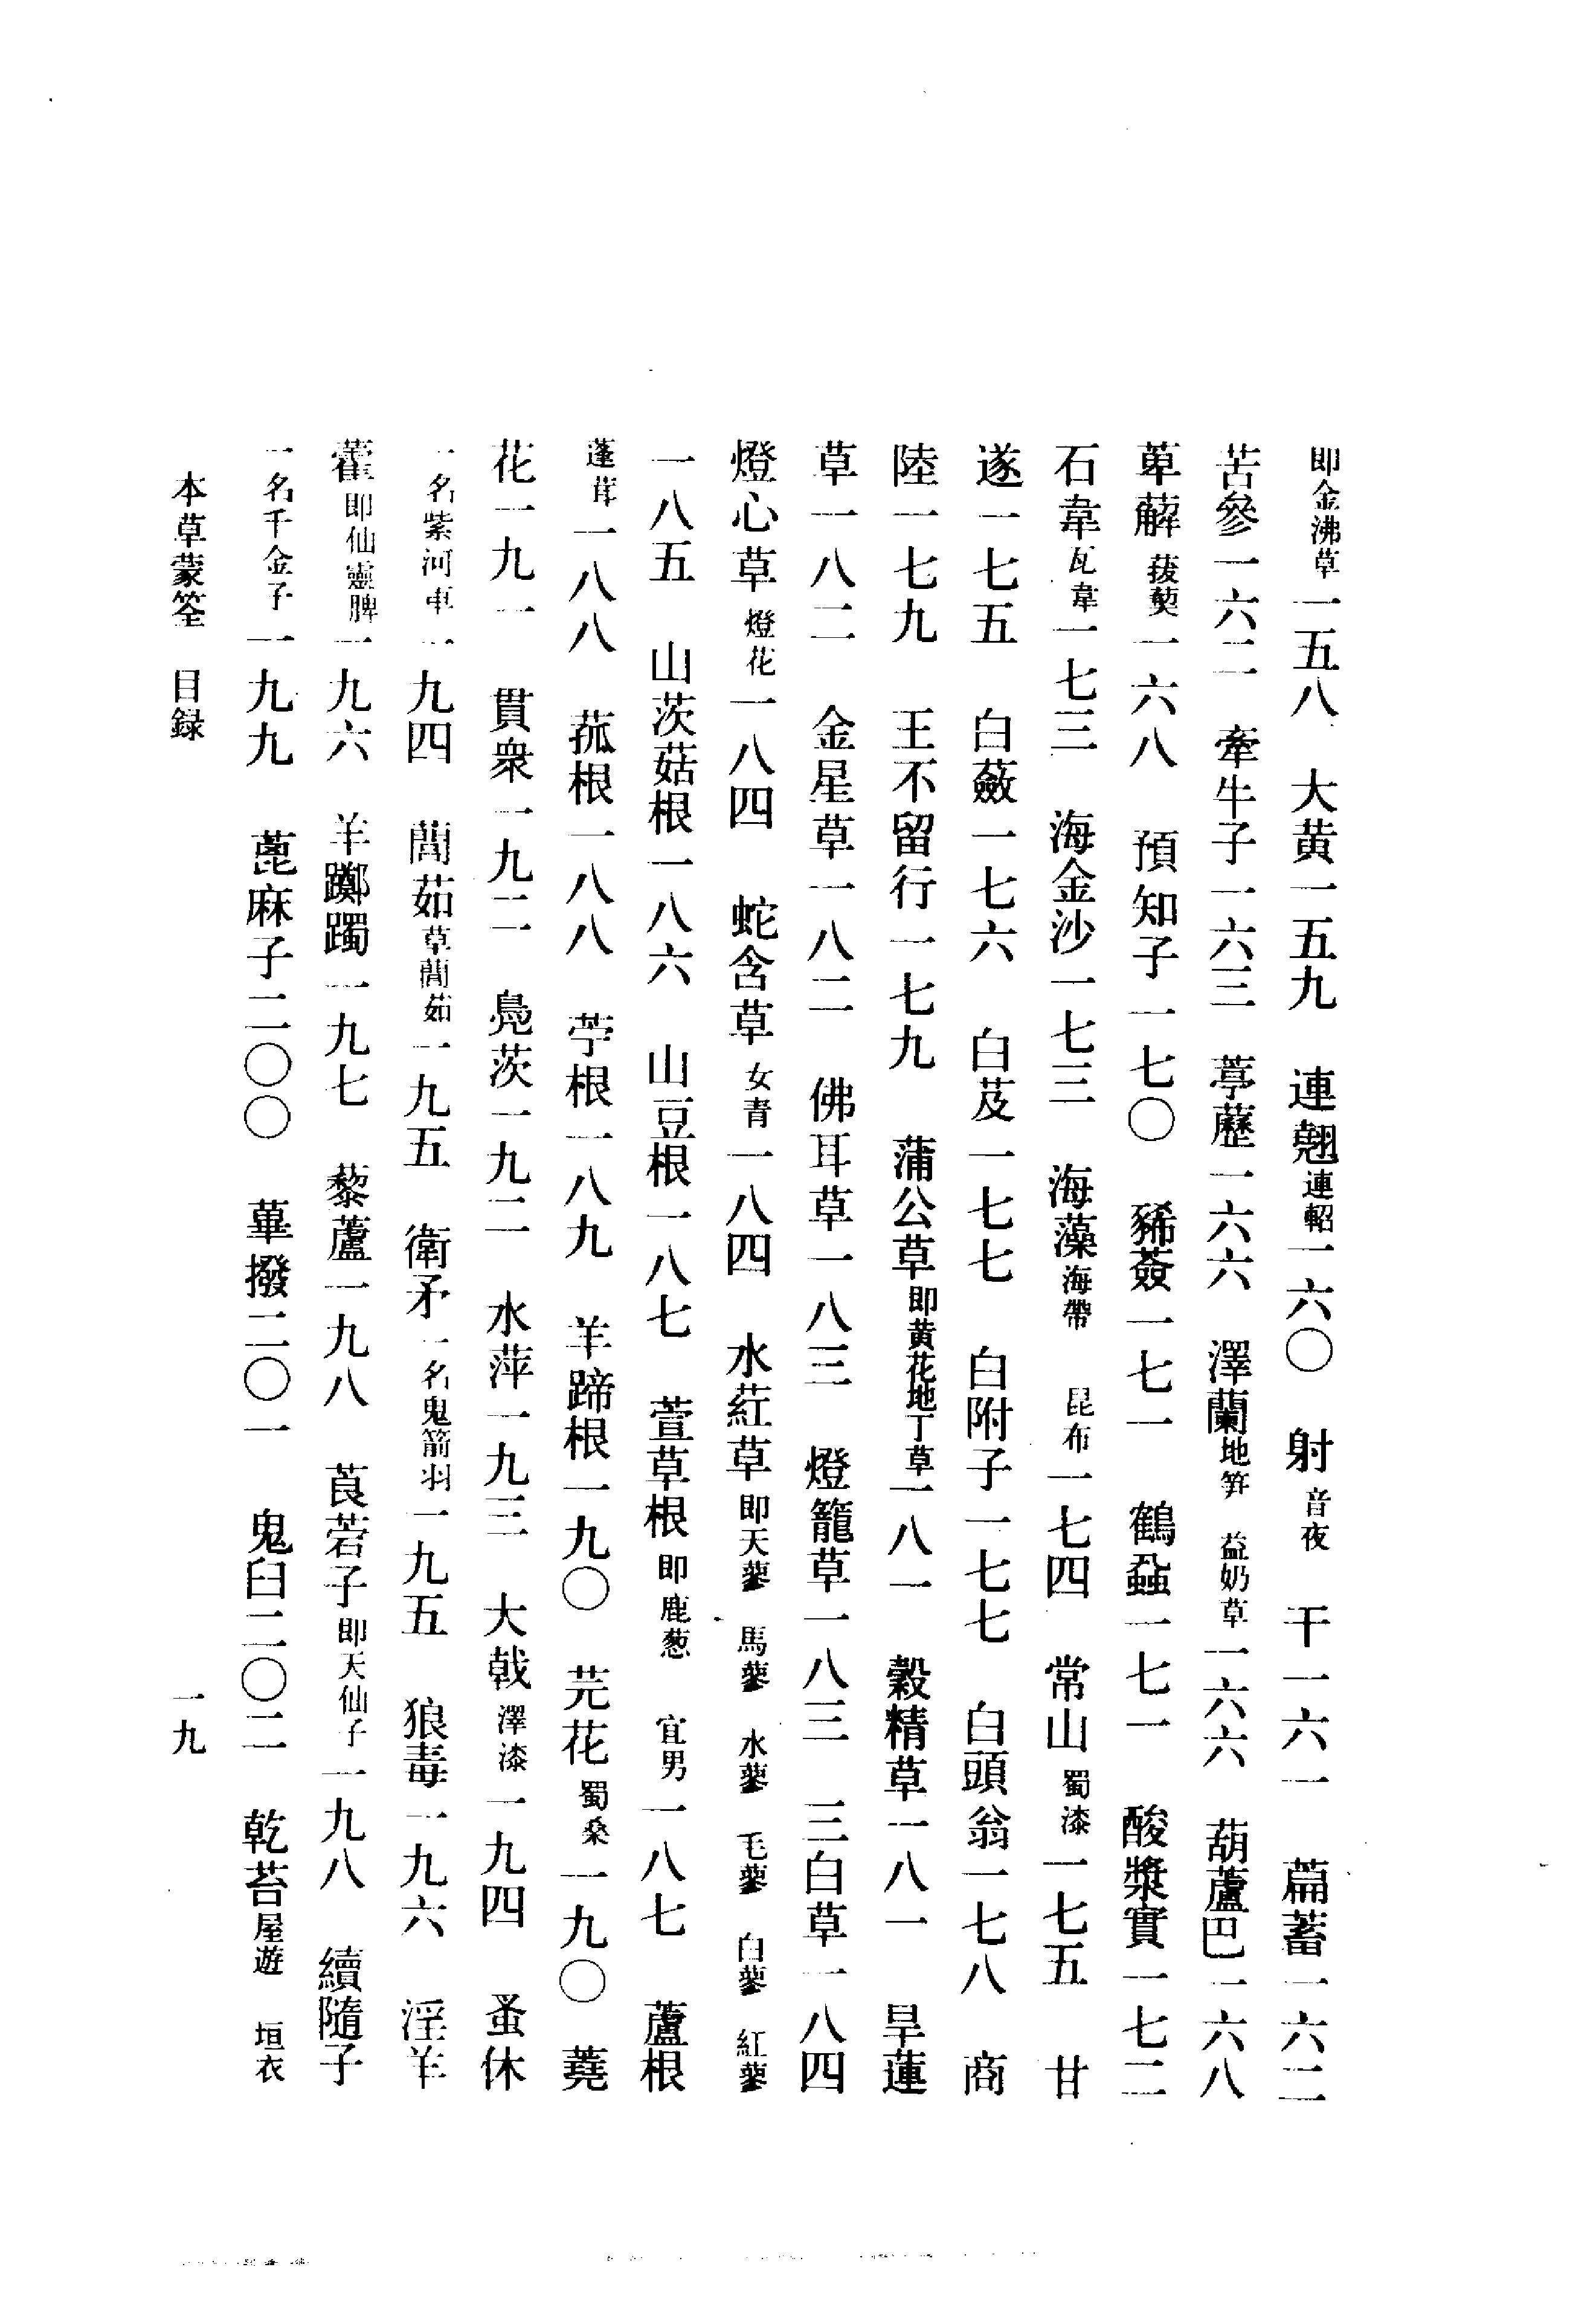 即金沸草一五八　大黄一五九　連翹連軺一六〇　射音夜　干一六一　萹蓄一六二
苦參一六二　牽牛子一六三　葶藶一六六　澤蘭地笋　益奶草一六六　葫蘆巴一六八
萆薢菝葜一六八　預知子一七〇　豨薟一七一　鶴蝨一七一　酸漿實一七二
石韋瓦韋一七三　海金沙一七三　海藻海帶　昆布一七四　常山蜀漆一七五　甘
遂一七五　白蘞一七六　白芨一七七　白附子一七七　白頭翁一七八　商
陸一七九　王不留行一七九　蒲公草即黄花地丁草一八一　穀精草一八一　旱蓮
草一八二　金星草一八二　佛耳草一八三　燈籠草一八三　三白草一八四
燈心草燈花一八四　蛇含草女青一八四　水葒草即天蓼　馬蓼　水蓼　毛蓼　白蓼　紅蓼
一八五　山茨菇根一八六　山豆根一八七　萱草根即鹿葱　宜男一八七　蘆根
蓬茸一八八　菰根一八八　苧根一八九　羊蹄根一九〇　芫花蜀桑一九〇　蕘
花一九一　貫衆一九二　鳧茨一九二　水萍一九三　大戟澤漆一九四　蚤休
一名紫河車一九四　藘茹草藘茹一九五　衛矛一名鬼箭羽一九五　狼毒一九六　淫羊
藿即仙靈脾一九六　羊躑躅一九七　藜蘆一九八　莨菪子即天仙子一九八　續隨子
一名千金子一九九　蓖麻子二〇〇　蓽撥二〇一　鬼臼二〇二　乾苔屋遊　垣衣
本草蒙筌　目録　一九